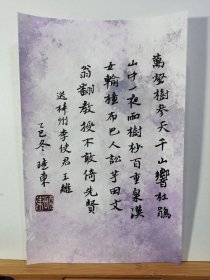 萬壑樹參天千山響杜鵑
山中一夜雨樹杪百重泉漢
女輸橦布巴人訟芋田文
翁翻教授不敢倚先賢
送梓州李使君 王維
乙巳冬 東